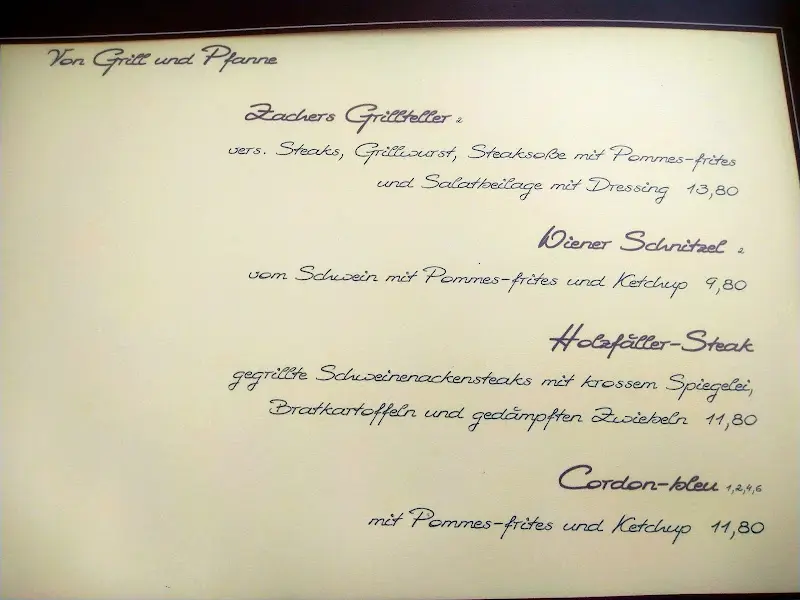 Von Grill und Pfanne
Zachers Grillteller 2
vers. Steaks, Grillwurst, Steaksoße mit Pommes-frites
und Salatbeilage mit Dressing 13,80
Wiener Schnitzel 2
vom Schwein mit Pommes-frites und Ketchup 9,80
Holzfäller-Steak
gegrillte Schweinenackensteaks mit krossem Spiegelei,
Bratkartoffeln und gedämpften Zwiebeln 11,80
Cordon-bleu 1,2,4,6
mit Pommes-frites und Ketchup 11,80